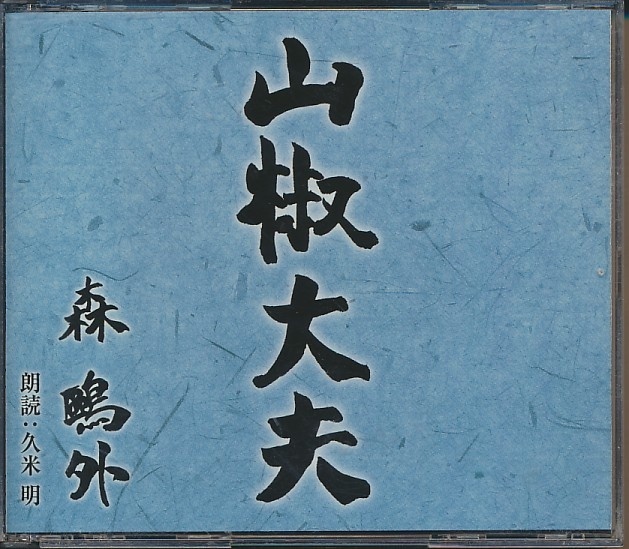 山椒大夫
森鷗外
朗読：久米 明